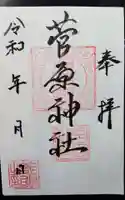 奉拝
菅原神社
令和 年 月